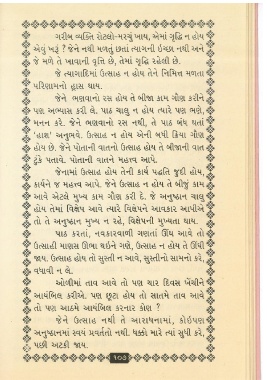 ગરીબ વ્યક્તિ રોટલો-મરચું ખાય, એમાં વૃદ્ધિ ન હોય
એવું ખરૂં ? જેને નથી મળતું છતાં ત્યાગની ઇચ્છા નથી અને
જે મળે તે ખાવાની વૃત્તિ છે, તેમાં વૃદ્ધિ રહેલી છે.
જે ત્યાગાદિમાં ઉત્સાહ ન હોય તેને નિમિત્ત મળતા
પરિણામનો હ્રાસ થાય.
જેને ભણવાનો રસ હોય તે બીજા કામ ગૌણ કરીને
પણ અભ્યાસ કરી લે. પાઠ ચાલુ ન હોય ત્યારે પણ ભણે,
મનન કરે. જેને ભણવાનો રસ નથી, તે પાઠ બંધ થતાં
'હાશ' અનુભવે. ઉત્સાહ ન હોય એની બધી ક્રિયા ગૌણ
હોય છે. જેને પોતાની વાતનો ઉત્સાહ હોય તે બીજાની વાત
ટુંકે પતાવે. પોતાની વાતને મહત્ત્વ આપે.
જેનામાં ઉત્સાહ હોય તેની કાર્ય પદ્ધતિ જુદી હોય,
કાર્યને જ મહત્ત્વ આપે. જેને ઉત્સાહ ન હોય તે બીજું કામ
આવે એટલે મુખ્ય કામ ગૌણ કરી દે. જે અનુષ્ઠાન ચાલુ
હોય તેમાં વિક્ષેપ આવે ત્યારે વિક્ષેપને આવકાર આપીએ
તો તે અનુષ્ઠાન મુખ્ય ન રહે, વિક્ષેપની મુખ્યતા થાય.
પાઠ કરતાં, નવકારવાળી ગણતાં ઊંઘ આવે તો
ઉત્સાહી માણસ ઊભા થઇને ગણે, ઉત્સાહ ન હોય તે ઊંઘી
જાય. ઉત્સાહ હોય તો સુસ્તી ન આવે, સુસ્તીનો સામનો કરે,
વધાવી ન લે.
ઓળીમાં તાવ આવે તો પણ ચાર દિવસ ખેંચીને
આયંબિલ કરીએ. પણ છૂટા હોય તો સાતમે તાવ આવે
તો પણ આઠમે આયંબિલ કરનાર કોણ ?
જેને ઉત્સાહ નથી તે આરાધનામાં, કોઇપણ
અનુષ્ઠાનમાં સ્વયં પ્રવર્તતો નથી. ધક્કો મારે ત્યાં સુધી કરે,
પછી અટકી જાય.
૧૦૭